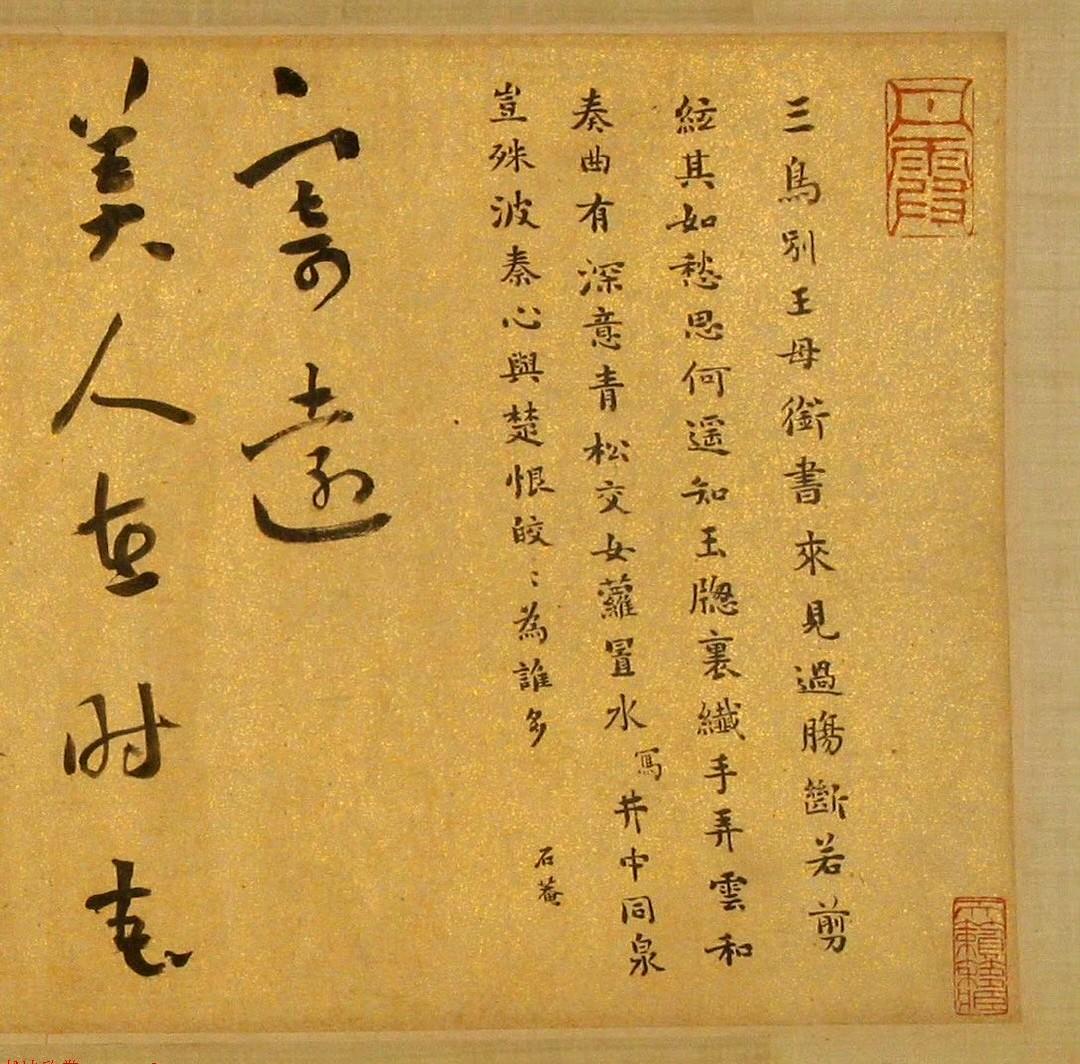 三鳥別王母銜書來見過腸斷若剪
絃其如愁思何遥知玉牎裏纖手弄雲和
奏曲有深意青松交女蘿置水
寫
井中同泉
豈殊波秦心與楚恨皎〻為誰多
石菴
寄遠
美人在時花
丹霞